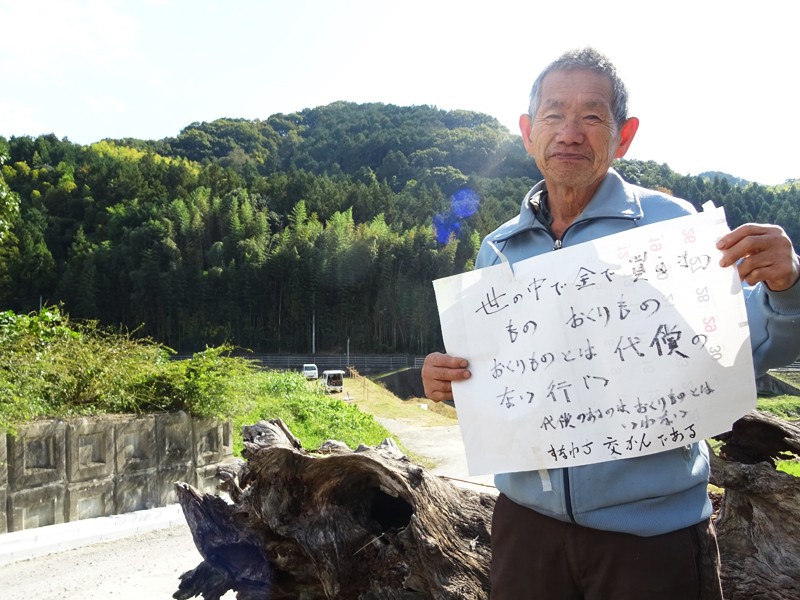 世の中で金で買えぬ
もの おくりもの
おくりものとは 代償の
ない行い
代償のあるのは、おくりものとは
いわない
すなわち 交かんである
28
29
30